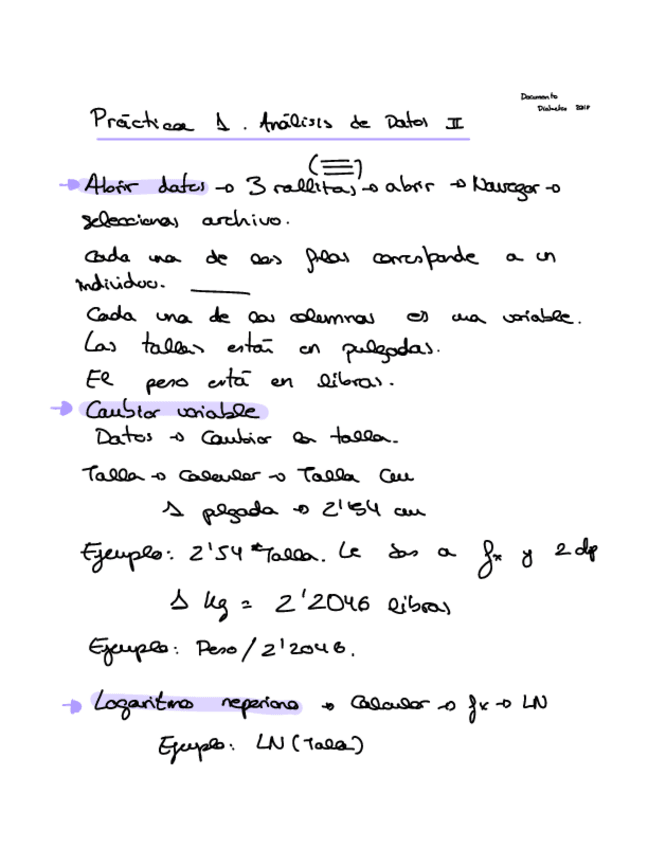 Documento
Diabetes 2018
Práctica 1. Análisis de Datos II
→ Abrir datos → 3 rallitas (≡) → abrir → Navegar →
seleccionas archivo.
Cada una de las filas corresponde a un
individuo.
Cada una de las columnas es una variable.
Las tallas están en pulgadas.
El peso está en libras.
→ Cambiar variable
Datos → Cambiar la talla.
Talla → Calcular → Talla cm
1 plgada → 2'54 cm
Ejemplo: 2'54 * Talla. Le das a fx y 2 dp
1 kg = 2'2046 libras
Ejemplo: Peso / 2'2046.
→ Logaritmo neperiano → Calcular → fx → LN
Ejemplo: LN (Talla)